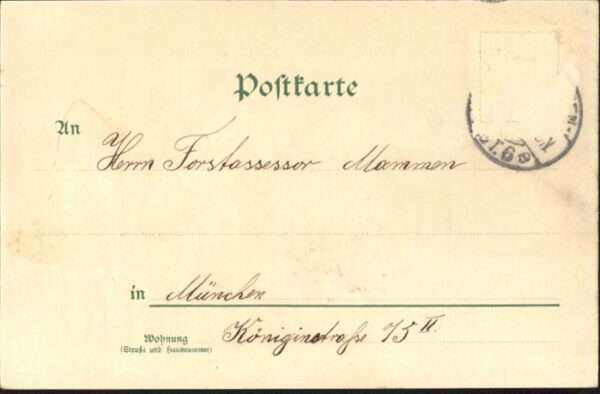 Postkarte
An
Herrn Forstassessor Mammen
in München
Wohnung
(Straße und Hausnummer)
Königinstraße 75 II.